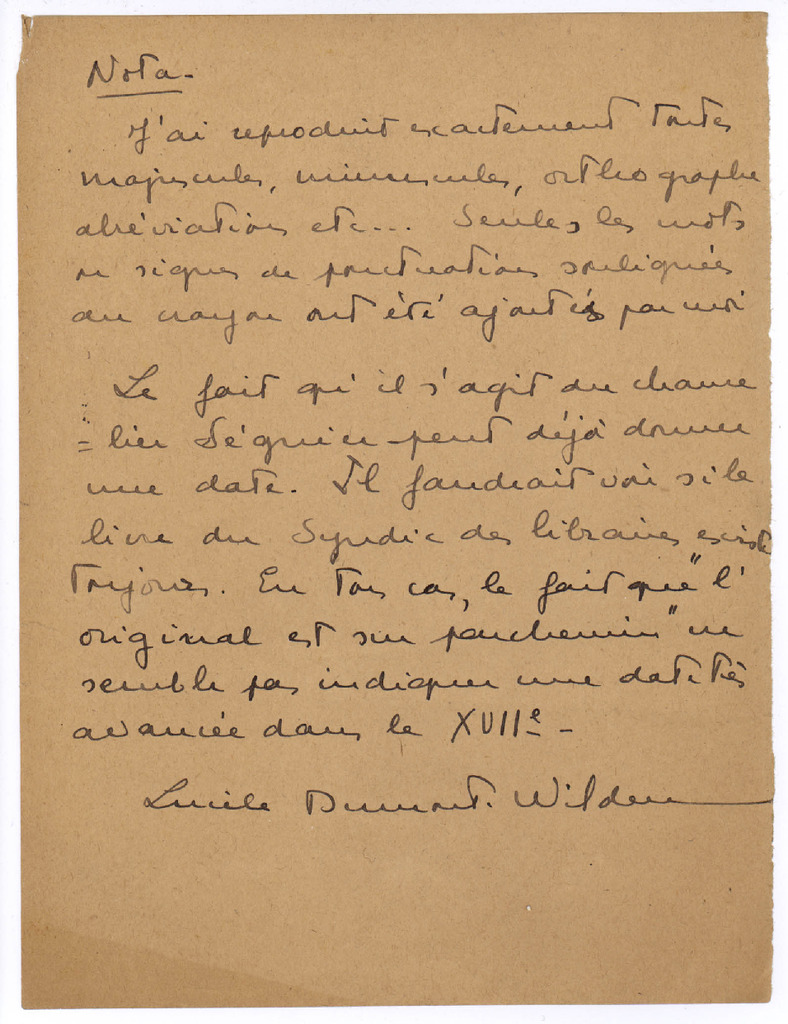 Nota.
J'ai reproduit exactement toutes
majuscules, minuscules, orthographe
abréviations etc... Seules les mots
ou signes de ponctuations soulignés
au crayon ont été ajoutés par moi
Le fait qu'il s'agit du chance
= lier Séguier peut déjà donner
une date. Il faudrait voir si le
livre du Syndic des libraires existe
toujours. En tous cas, le fait que "l'
original est sur parchemin" ne
semble pas indiquer une date très
avancée dans le XVIIe -
Lucile Dumont-Wilden